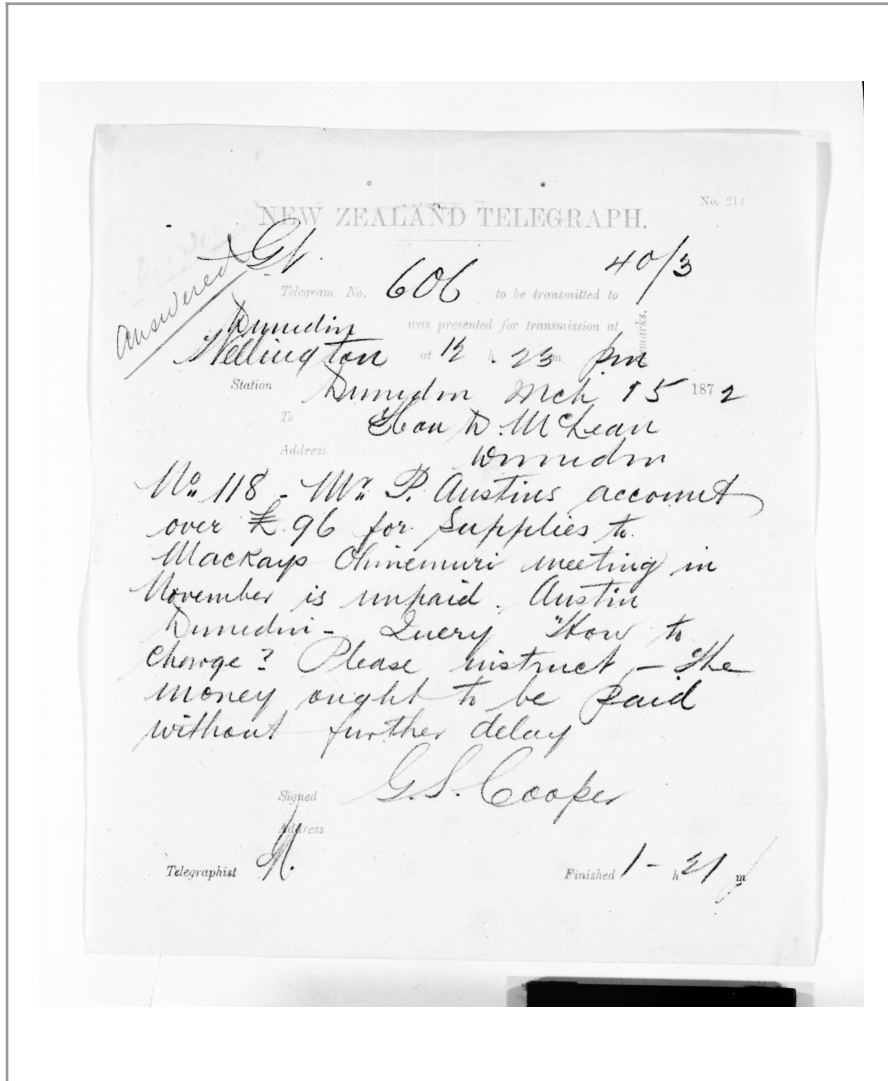 No. 214.
NEW ZEALAND TELEGRAPH.
Answered
Gt.
40/3
Telegram No. 606 to be transmitted to
Dunedin was presented for transmission at
Remarks.
Wellington at 12 h. 23 m pm
Station Dunedin Mch 15 1872
To Hon D. McLean
Address Dunedin
No. 118 - Mr. P. Austins account
over £96 for Supplies to
Mackays Ohinemuri meeting in
November is unpaid. Austin
Dunedin - Query "How to
charge? Please instruct - The
money ought to be paid
without further delay
Signed G.S. Cooper
Address
Telegraphist
Finished 1 - h 21 m